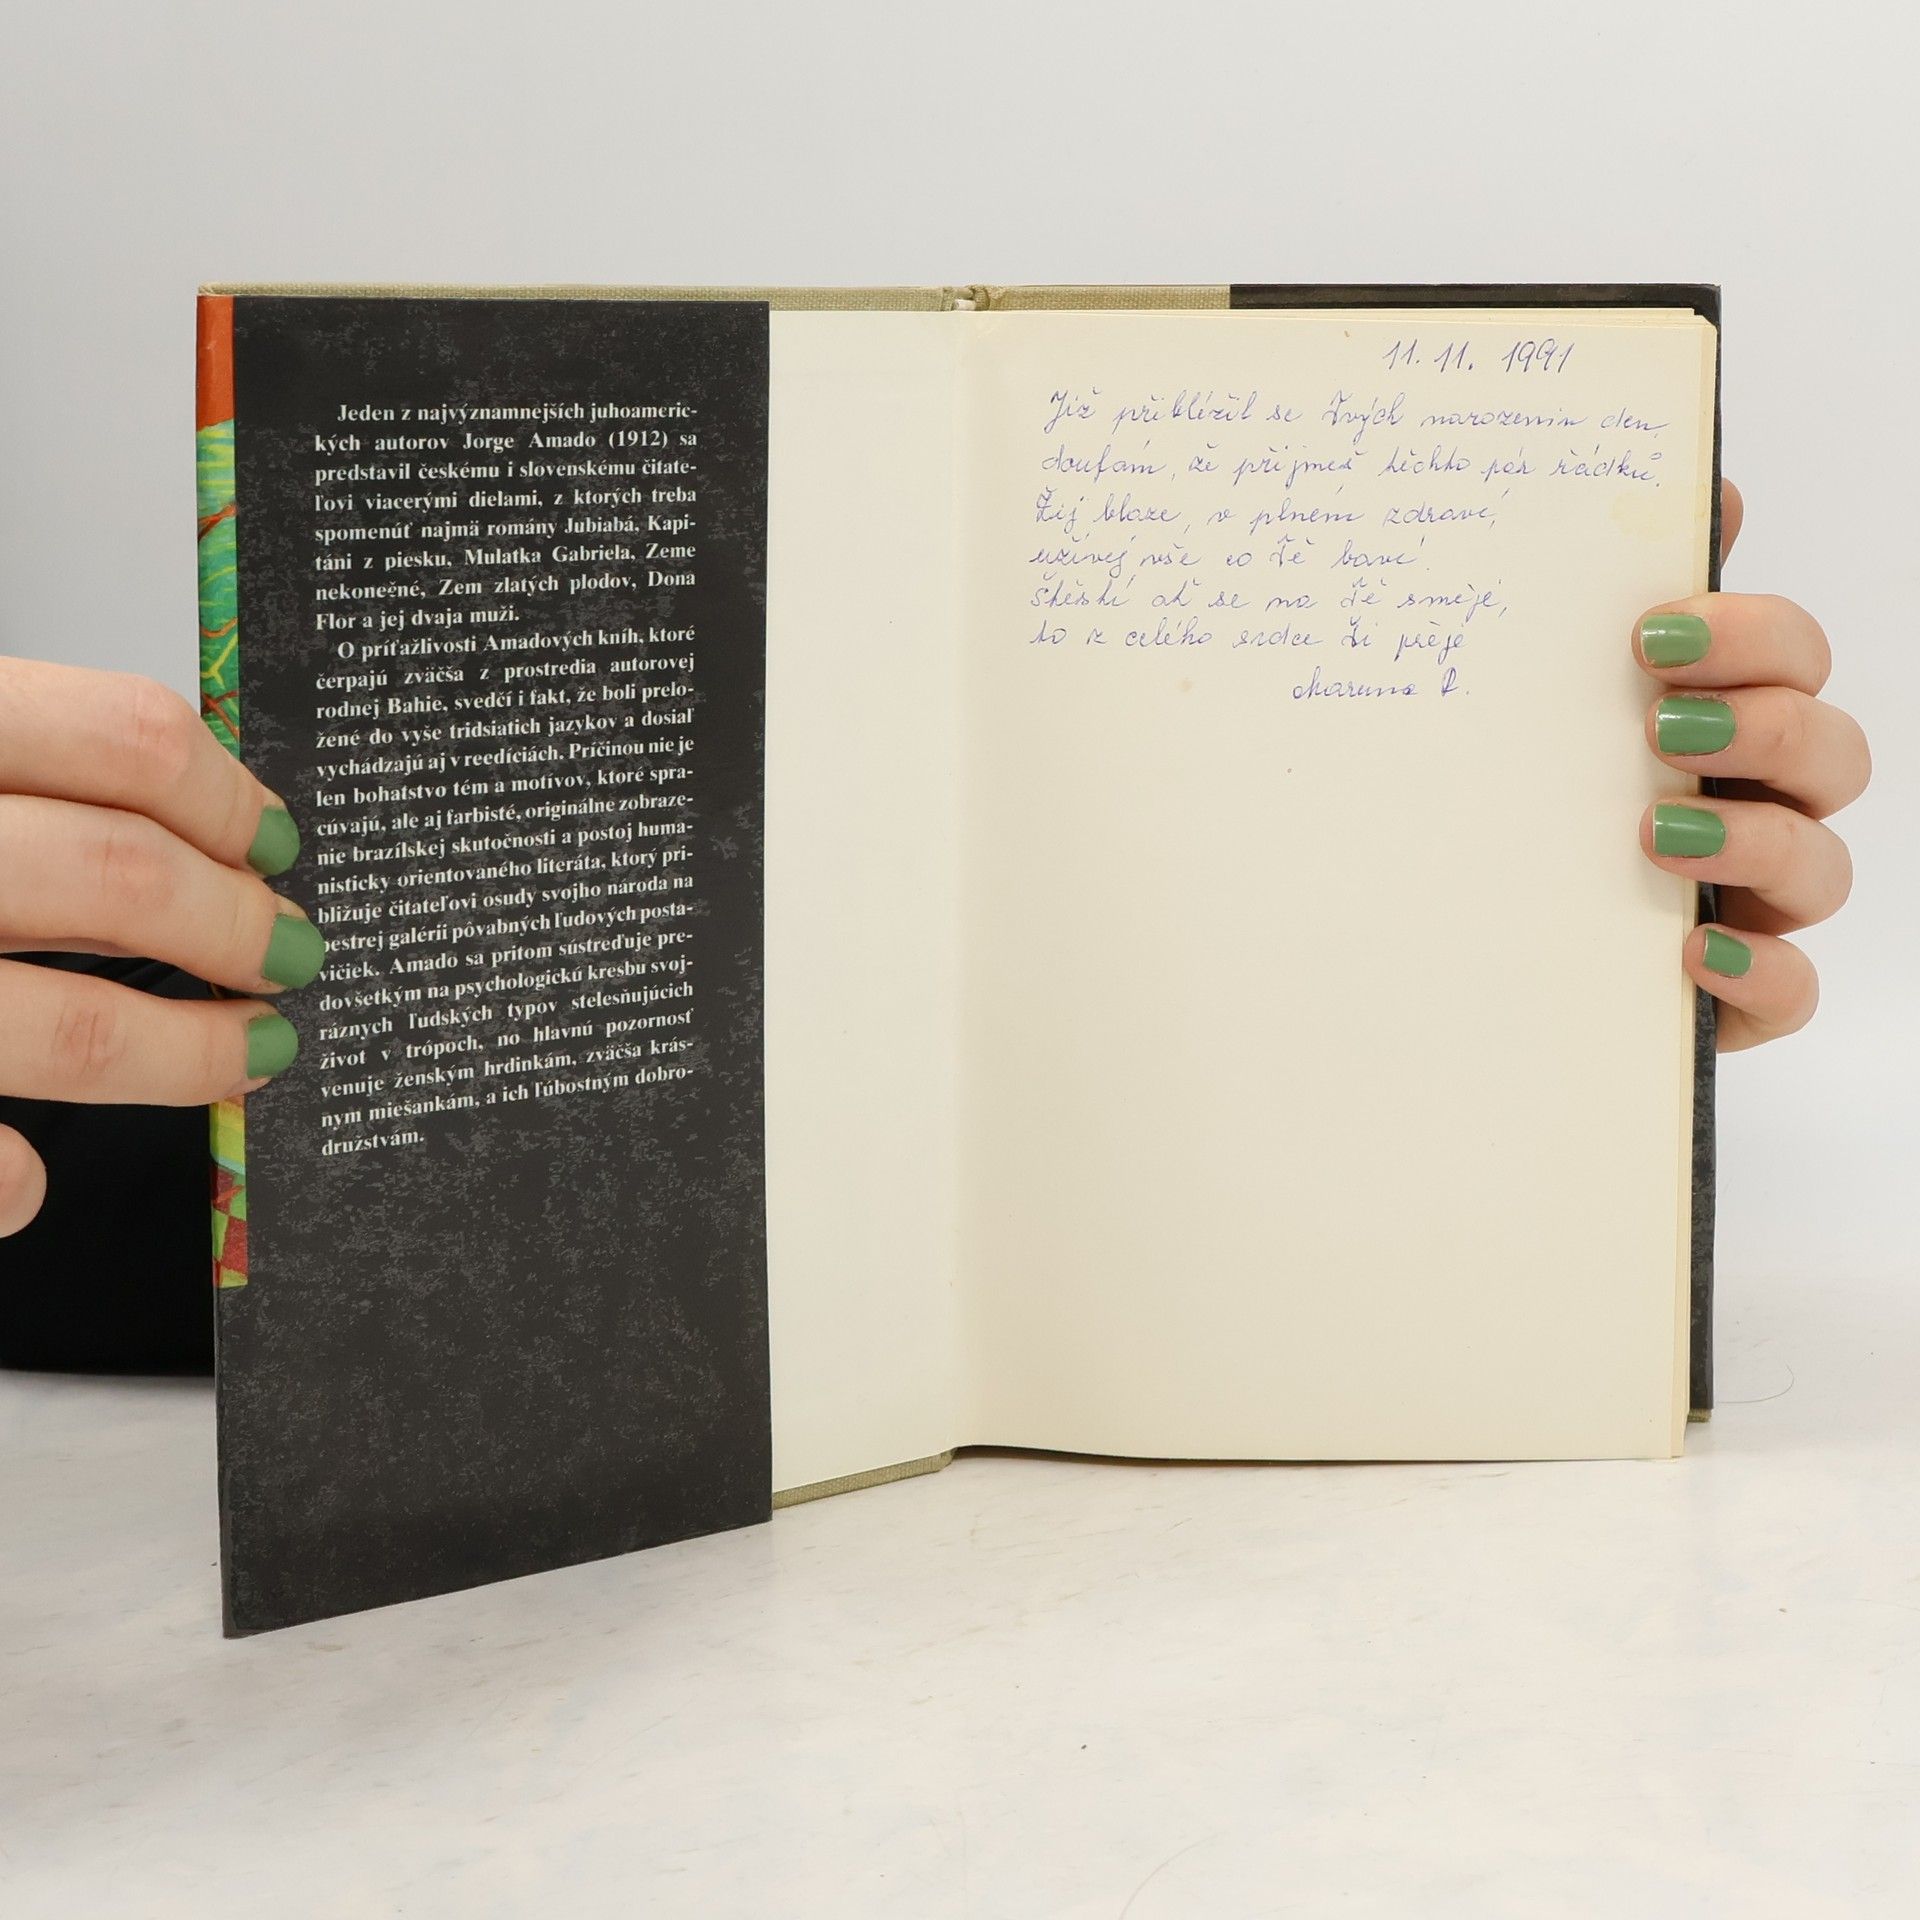 Jeden z najvýznamnejších juhoameric-
kých autorov Jorge Amado (1912) sa
predstavil českému i slovenskému čitate-
ľovi viacerými dielami, z ktorých treba
spomenúť najmä romány Jubiabá, Kapi-
táni z piesku, Mulatka Gabriela, Zeme
nekonečné, Zem zlatých plodov, Dona
Flor a jej dvaja muži.
O príťažlivosti Amadových kníh, ktoré
čerpajú zväčša z prostredia autorovej
rodnej Bahie, svedčí i fakt, že boli prelo-
žené do vyše tridsiatich jazykov a dosiaľ
vychádzajú aj v reedíciách. Príčinou nie je
len bohatstvo tém a motívov, ktoré spra-
cúvajú, ale aj farbisté, originálne zobraze-
nie brazílskej skutočnosti a postoj huma-
nisticky orientovaného literáta, ktorý pri-
bližuje čitateľovi osudy svojho národa na
pestrej galérii pôvabných ľudových posta-
vičiek. Amado sa pritom sústreďuje pre-
dovšetkým na psychologickú kresbu svoj-
ráznych ľudských typov stelesňujúcich
život v trópoch, no hlavnú pozornosť
venuje ženským hrdinkám, zväčša krás-
nym miešankám, a ich ľúbostným dobro-
družstvám.
11. 11. 1991
Již přiblížil se Tvých narozenin den,
doufám, že přijmeš těchto pár řádků.
Žij blaze, v plném zdraví,
užívej vše co Tě baví.
Štěstí ať se na Tě směje,
to z celého srdce Ti přeje